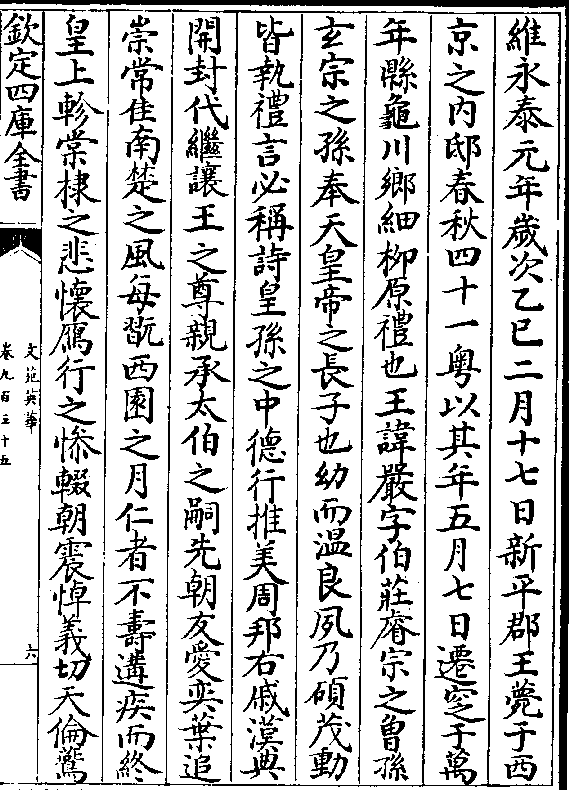 維永泰元年歲次乙巳二月十七日新平郡王薨于西
京之内邸春秋四十一粤以其年五月七日遷窆于萬
年縣龜川鄉細柳原禮也王諱嚴字伯莊睿宗之曾孫
玄宗之孫奉天皇帝之長子也幼而温良夙乃碩茂動
皆執禮言必稱詩皇孫之中德行推美周邦右戚漢典
開封代繼讓王之尊親承太伯之嗣先朝友愛奕葉追
崇常佳南楚之風每翫西園之月仁者不壽遘疾而終
皇上軫棠棣之悲懷鴈行之慘輟朝震悼義切天倫鷟
欽定四庫全書
文苑英華
卷九百三十五
六